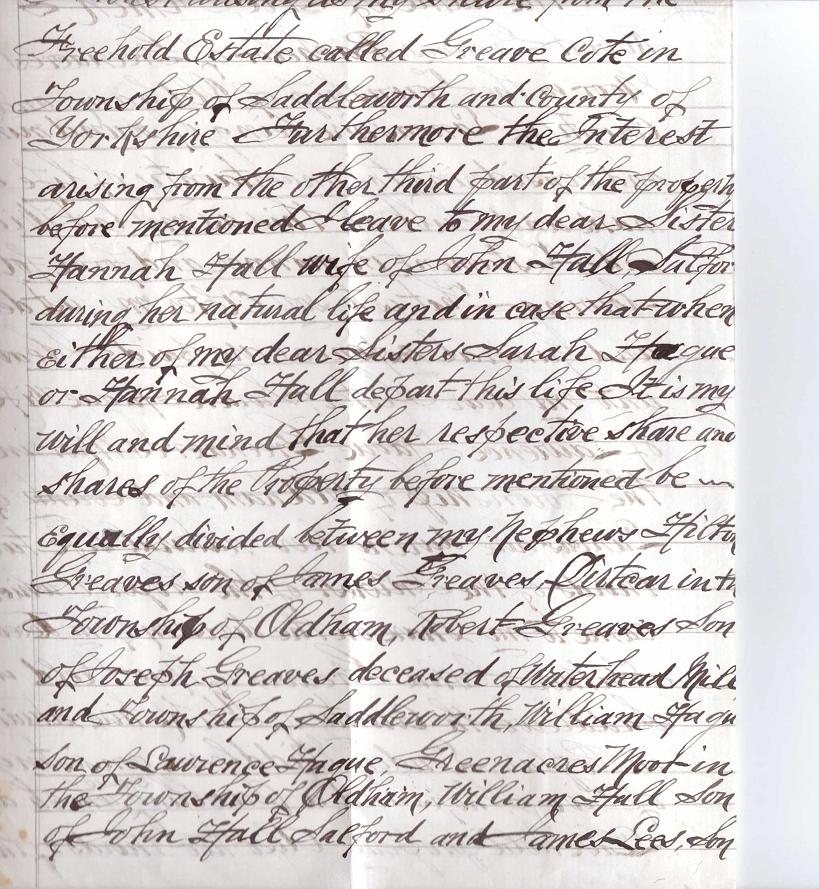 arising as my share from the
Freehold Estate called Greave Cote in
Township of Saddleworth and County of
Yorkshire Furthermore the Interest
arising from the other third part of the propert
before mentioned I leave to my dear Sister
Hannah Hall wife of John Hall Salfor
during her natural life and in case that when
Either of my dear Sisters Sarah Hague
or Hannah Hall depart this life It is my
will and mind that her respective share and
shares of the Property before mentioned be
Equally divided between my Nephews Hilto
Greaves son of James Greaves in th
Township of Oldham, Robert Greaves Son
of Joseph Greaves deceased of Waterhead Mill
and Township of Saddleworth, William Hagu
son of Lawrence Hague, Greenacres Moor in
the Township of Oldham, William Hall Son
of John Hall Salford and James Lees, Son